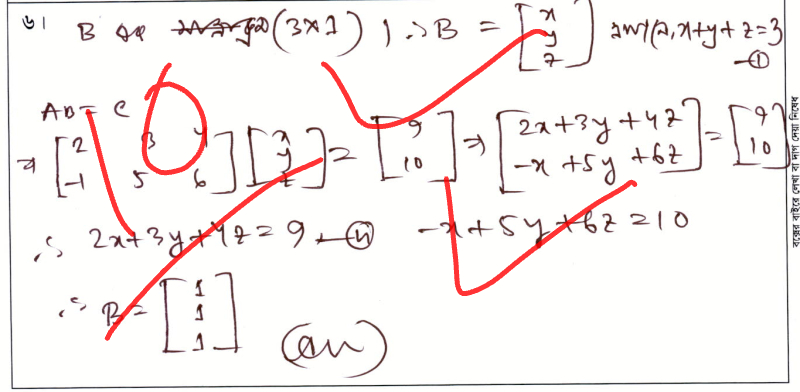 ৬। B এর (3×1) । ∴ B = [x y z] x+y+z=3 —①
AB = C
⇒ [2 3 4 -1 5 6] [x y z] = [9 10] ⇒ [2x+3y+4z -x+5y+6z] = [9 10]
∴ 2x+3y+4z = 9 —② -x+5y+6z=10
∴ B = [1 1 1] (an)
বক্সের বাইরে লেখা বা দাগ দেয়া নিষেধ